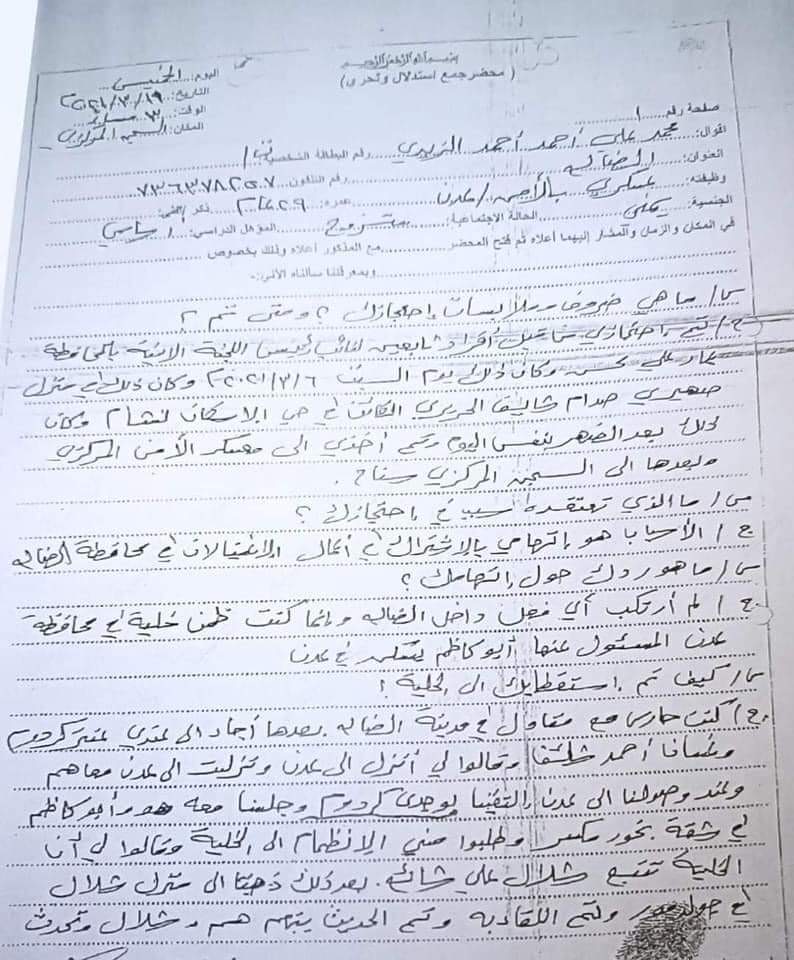 بسم الله الرحمن الرحيم
(محضر جمع استدلال وتحري)
اليوم: الخميس
التاريخ:
الوقت: ٣
المكان: السجن المركزي
صفحة رقم ١
أقوال: محمد علي أحمد أحمد الزبيدي رقم البطالة الشخصية
العنوان: الضالع رقم التلفون ٧٣٦٣٧٨٢٥٠٧
وظيفته: عسكري بالأمن / عدن عمره: ٢٩ عام
الجنسية: يمني الحالة الاجتماعية: متزوج المؤهل الدراسي: أساسي
في المكان والزمان والمشار إليهما أعلاه تم فتح المحضر مع المذكور أعلاه وذلك بخصوص
وبمعرفتنا سألناه الآتي:-
س/ ما هي ضروف وملابسات إحتجازك؟ ومتى تم؟
ج/ تم إحتجازي من قبل أفراد تابعين لنائب رئيس اللجنة الامنية بالمحافظة
عمار علي محسن وكان ذلك يوم السبت ٢٠٢١/٣/٦ وكان ذلك في منزل
صهيري صدام شائف الحريري الكائن في حي الاسكان لنشام وكان
ذلك بعد الضهر بنفس اليوم وتم أخذي الى معسكر الأمن المركزي
وبعدها الى السجن المركزي سناح.
س/ ما الذي تعتقده سبب في إحتجازك؟
ج/ الأسباب هو إتهامي بالإشتراك في أعمال الإغتيالات في محافظة الضالع
س/ ما هو ردك حول إتهامك؟
ج/ لم أرتكب أي فعل داخل الضالع وإنما كنت ظمن خلية في محافظة
عدن المسئول عنها أبو كاظم في عدن
س/ كيف تم إستقطابك الى الخلية؟
ج/ كنت حارس مع مقاول في مدينة الضالع بعدها الى عندي كردوم
وغسان أحمد وقالوا لي أنزل الى عدن ونزلت الى عدن معاهم
وعند وصولنا الى عدن التقينا بوجدي كردوم وجلسنا معه هو وأبو كاظم
في شقة بخور مكسر وطلبوا مني الإنظمام الى الخلية وقالوا لي أن
الخلية تتبع شلال علي شائع. بعد ذلك ذهبنا الى منزل شلال
في جولدمور وتم اللقاء به وتم الحديث بينهم هم وشلال وتحدث